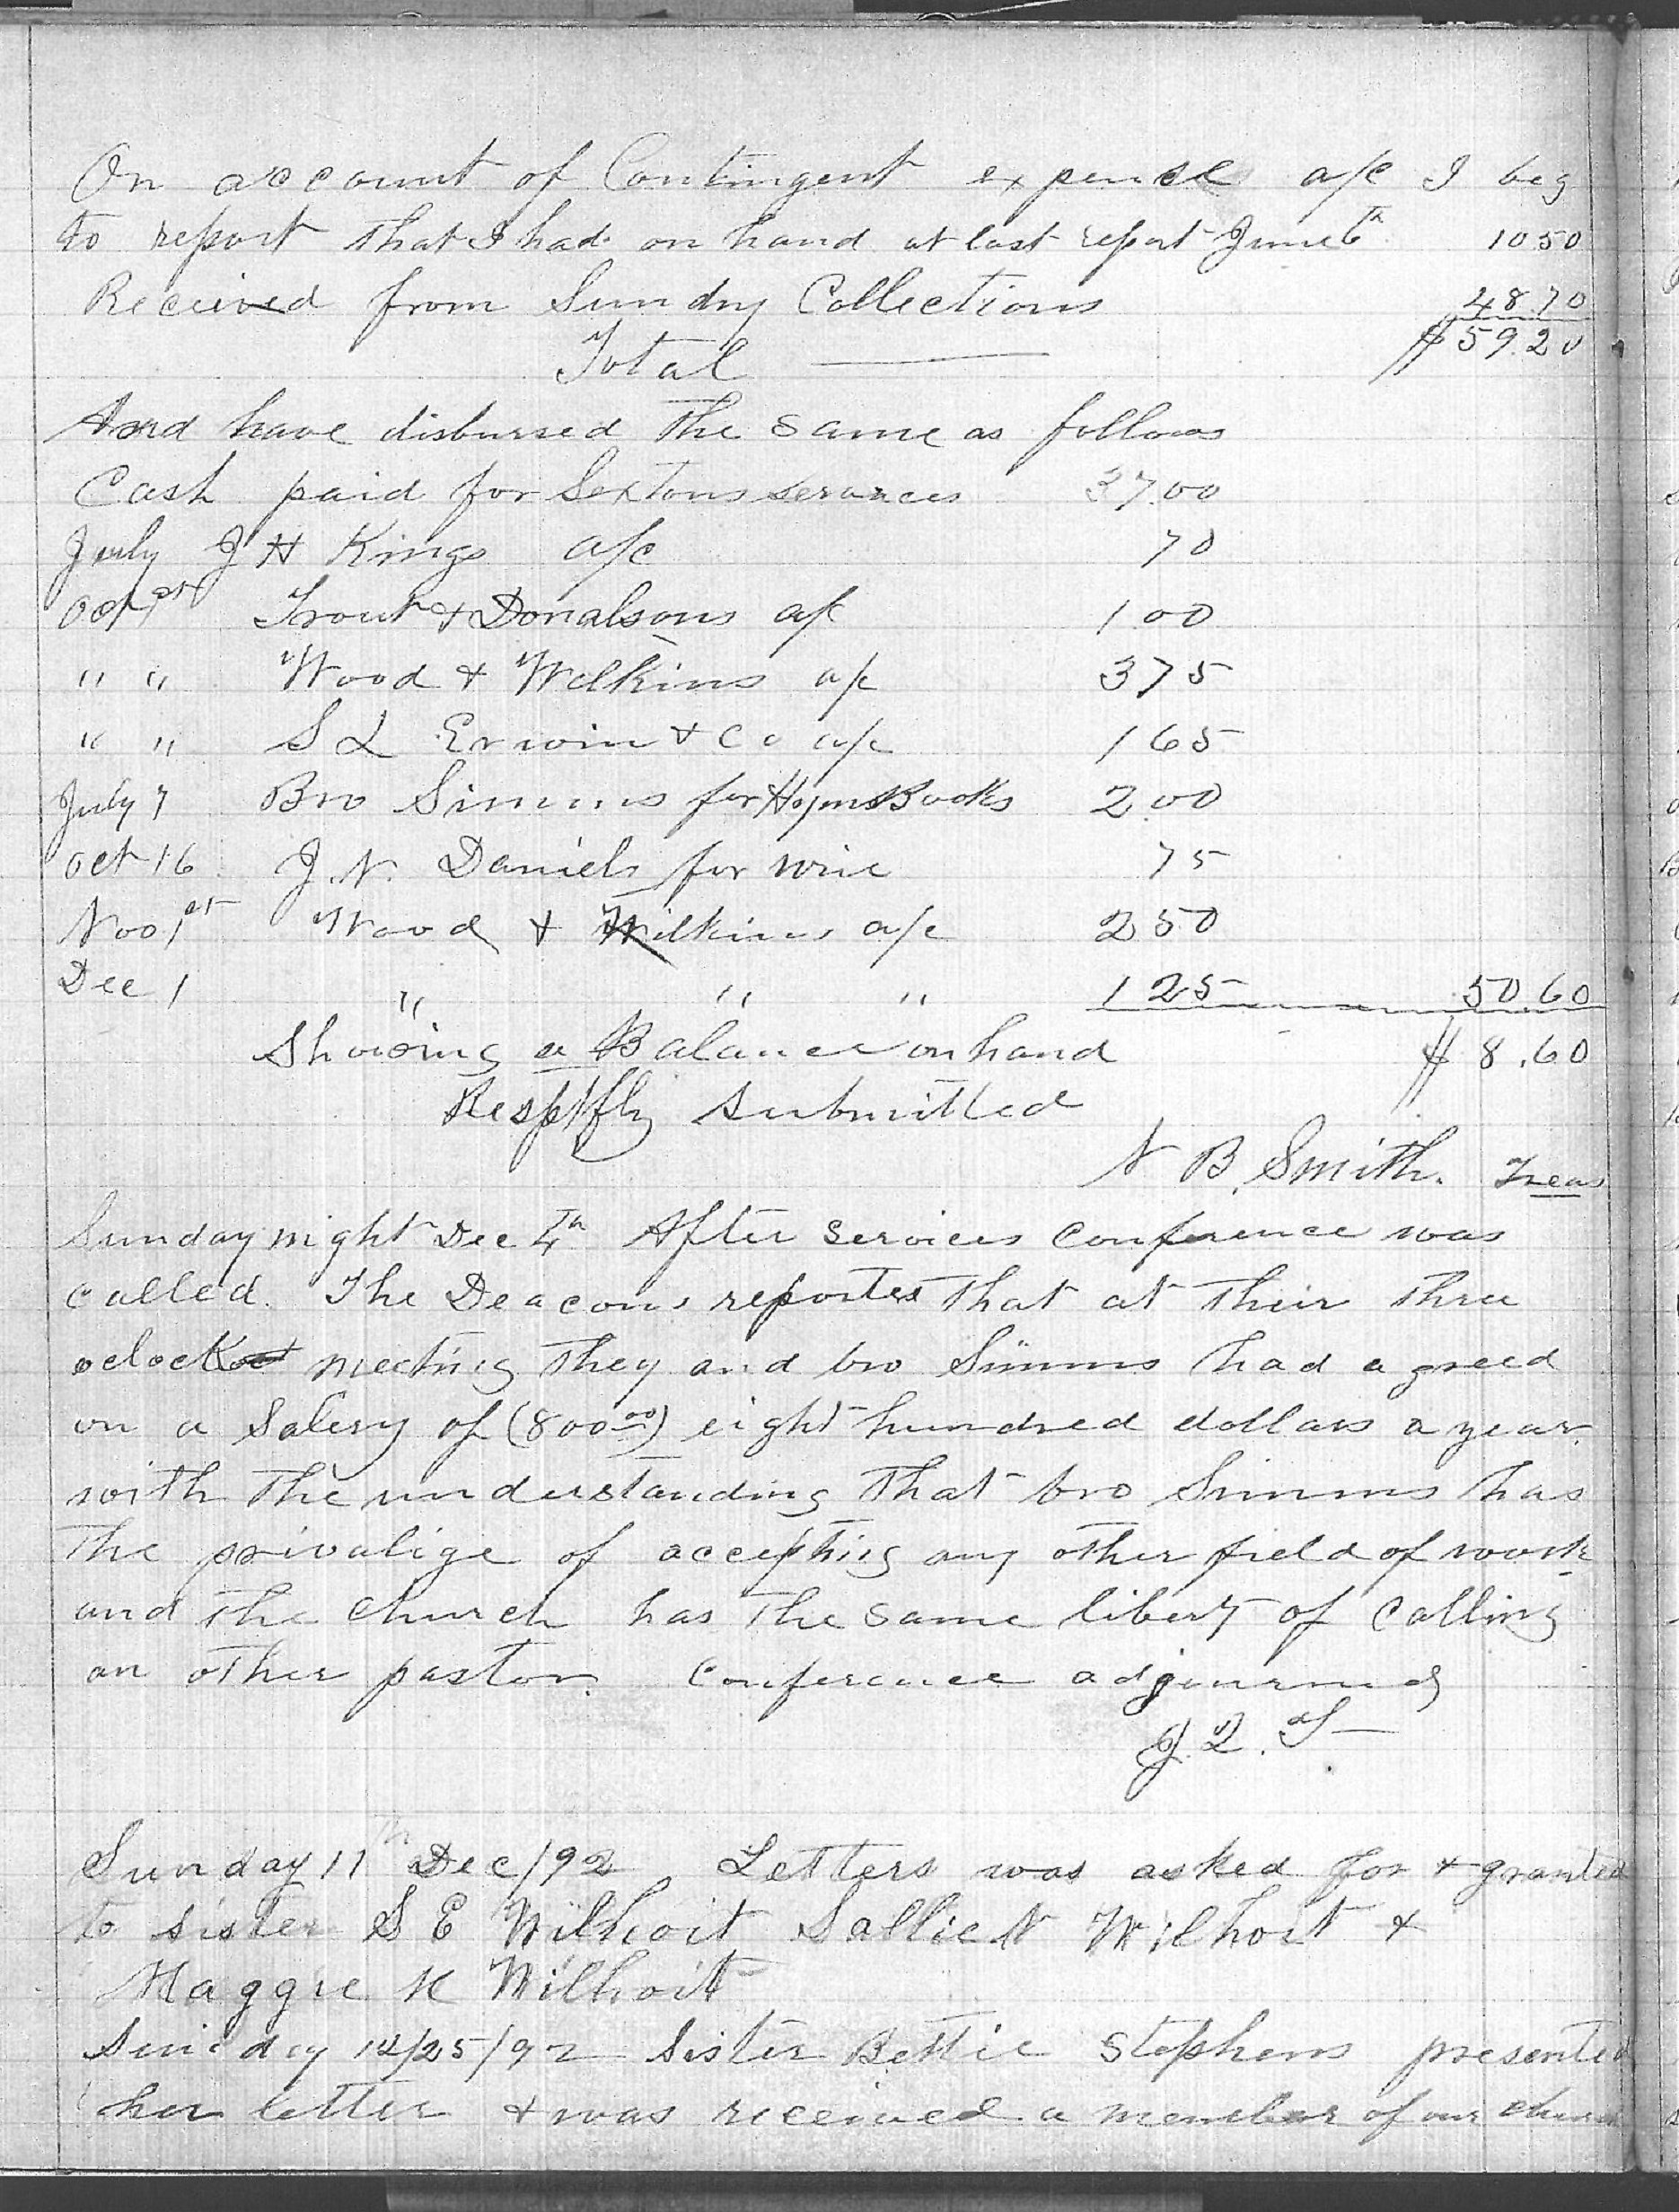 On account of Contingent expense a/c I beg
to report that I had on hand at last report June 6th 10 50
Received from Sundry Collections 48.70
Total $59.20
And have disbursed the same as follows
Cash paid for Sextons services 37.00
July J H Kings a/c 70
Oct 1st Trout & Donalsons a/c 1 00
" " Wood & Wilkins a/c 3 75
" " S L Erwin & Co a/c 1 65
July 7 Bro Simms for Hyms Books 2.00
Oct 16 J. N. Daniels for wine 75
Nov 1st Wood & Wilkins a/c 2 50
Dec 1 " " " 1 25 50.60
Showing a Balance on hand $8.60
Resptfly submitted
N B. Smith. Treas
Sunday night Dec 4th After services conference was
called. The Deacons reported that at their three
oclock meeting they and bro Simms had agreed
on a Salery of (800 00) eight hundred dollars a year
with the understanding that bro Simms has
the privalige of accepting any other field of work
and the church has the same liberty of calling
an other pastor. Conference adjourned
J. Q.
Sunday 11th Dec/92 Letters was asked for & granted
to sister S E Wilhoit Sallie N Wilhoit &
Maggie K Wilhoit
Sunday 12/25/92 Sister Bettie Stephens presented
her letter & was received a member of our church